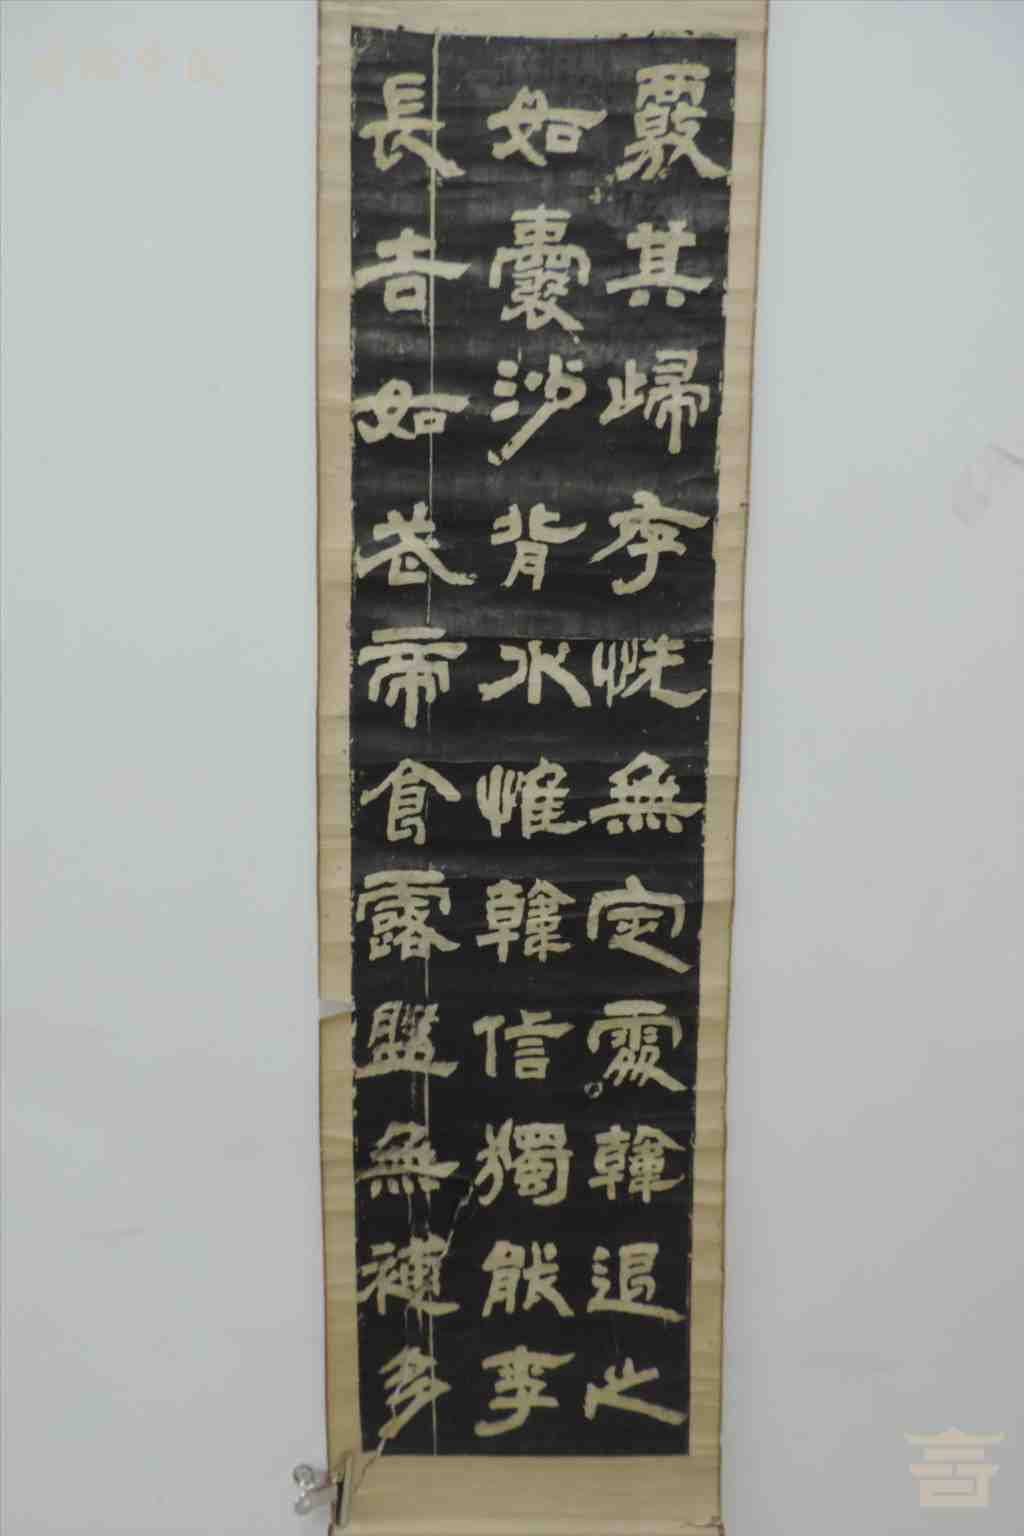 覈其歸存恍無定處韓退之
如囊沙背水惟韓信獨能李
長吉如武帝食露盤無補多